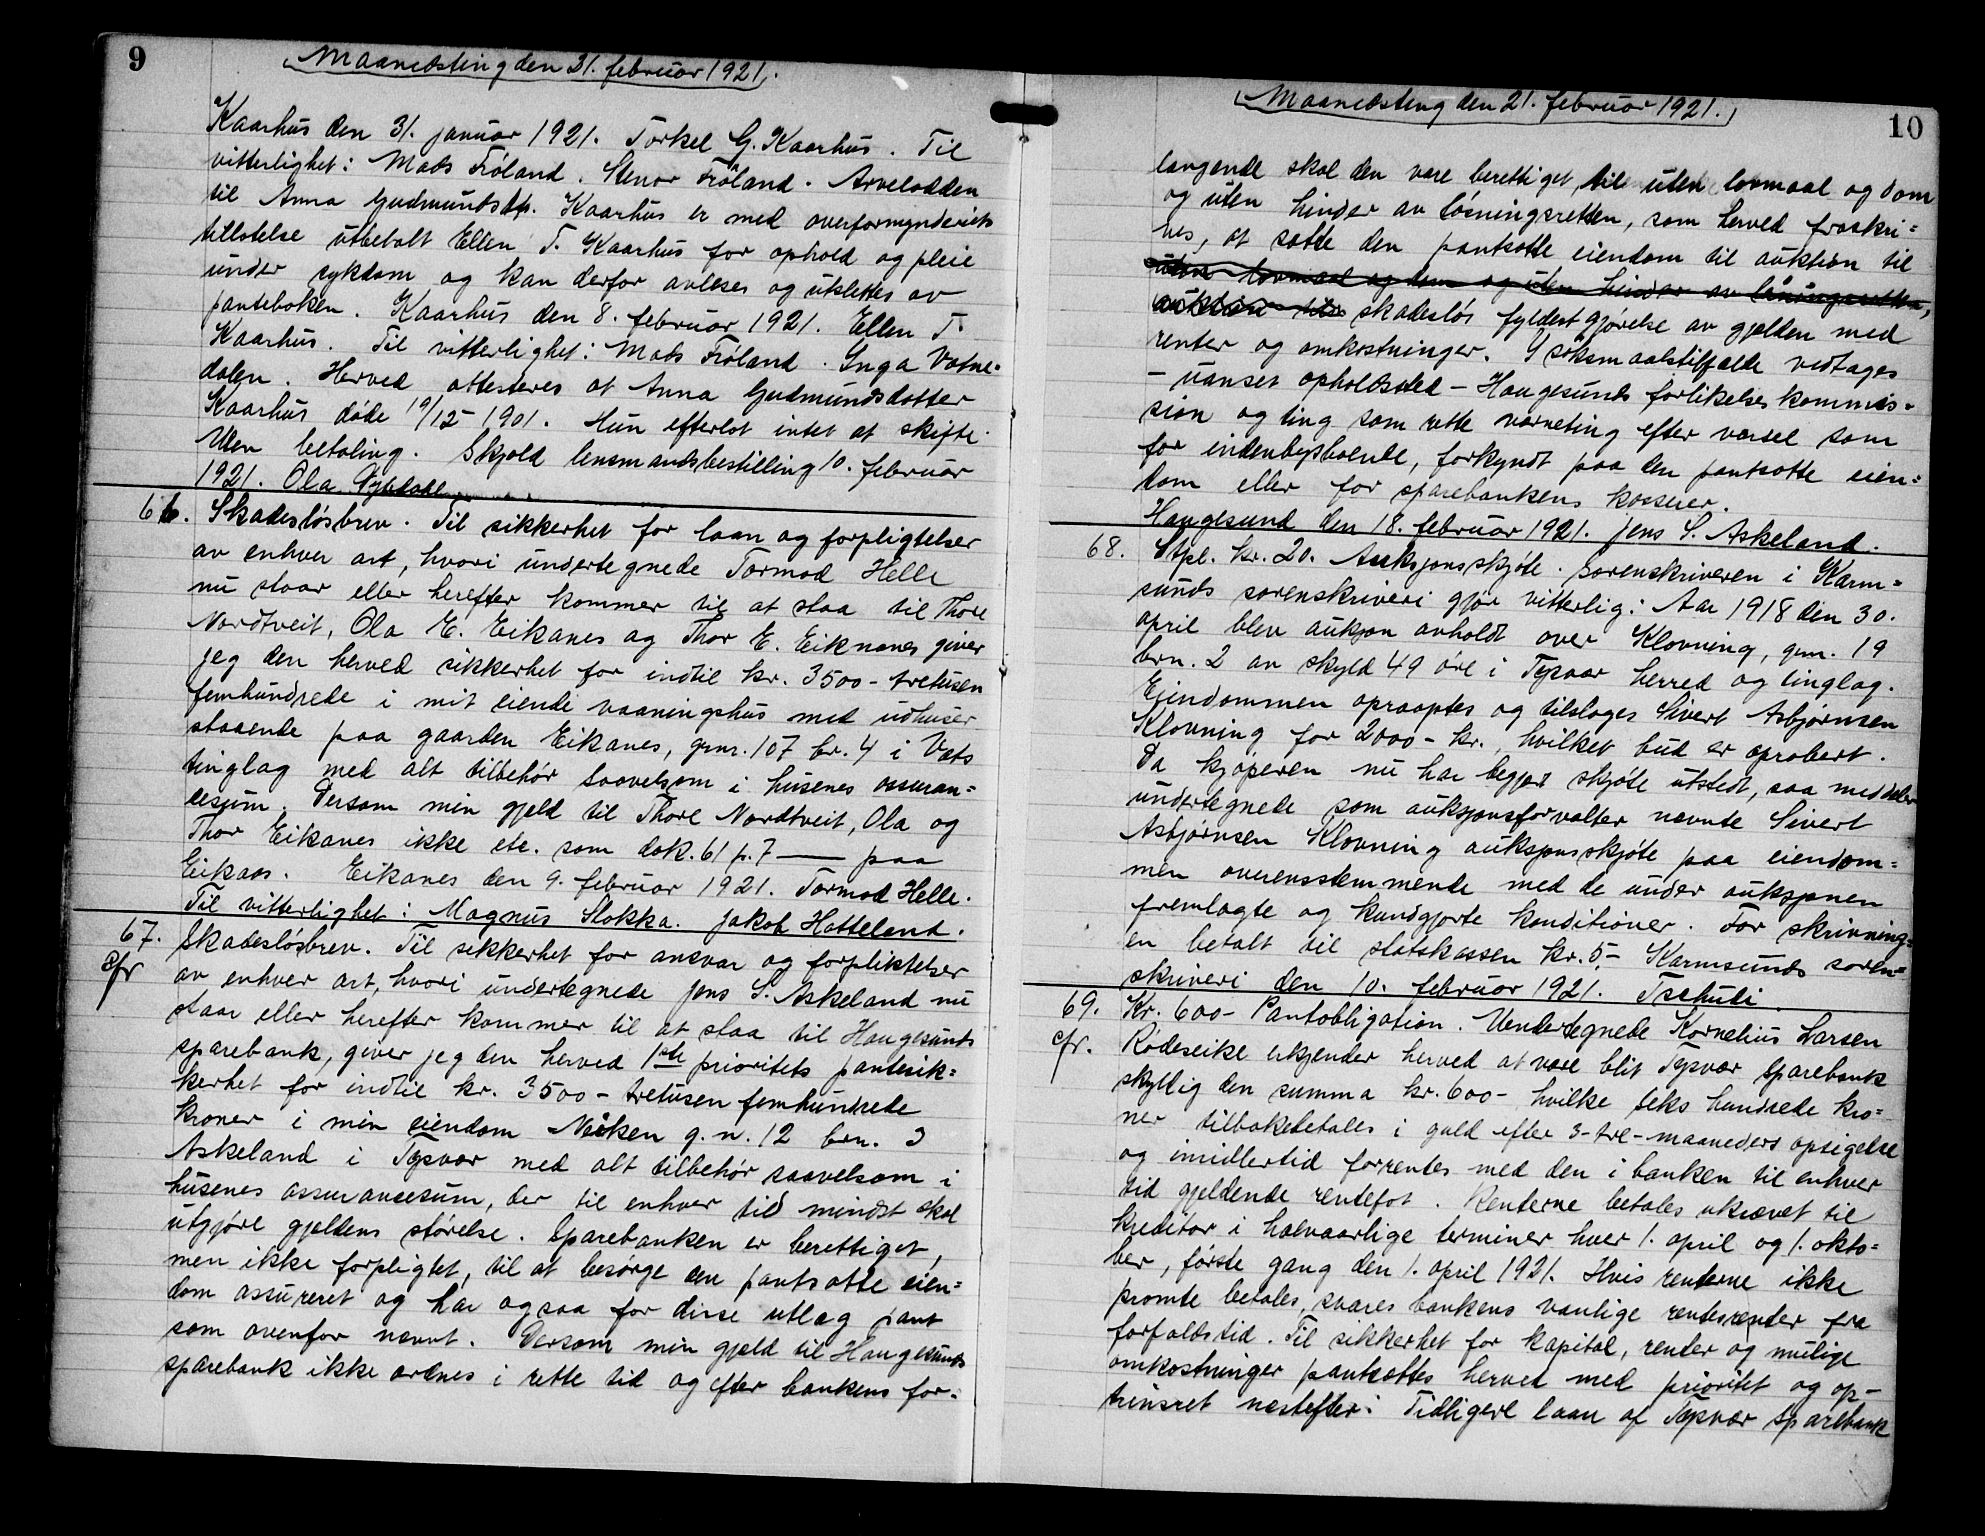 9
Maanedsting den 21. februar 1921.
Kaarhus den 31. januar 1921. Torkel G. Kaarhus. Til
vitterlighet: Mads Fröland. Stener Fröland. Arvelodden
til Anna Gudmundsdtr. Kaarhus er med overformynderiets
tillatelse utbetalt Ellen T. Kaarhus for ophold og pleie
under sykdom og kan derfor avleses og utslettes av
panteboken. Kaarhus den 8. februar 1921. Ellen T.
Kaarhus. Til vitterlighet: Mads Fröland. Inga Vatne-
dalen. Herved attesteres at Anna Gudmundsdatter
Kaarhus döde 19/12 1901. Hun efterlot intet at skifte.
Uten betaling. Skjold lensmandsbestilling 10. februar
1921. Ola
66. Skadeslösbrev. Til sikkerhet for laan og forpligtelser
av enhver art, hvori undertegnede Tormod Helle
nu staar eller herefter kommer til at staa til Thore
Nordtveit, Ola E. Eikanes og Thor E. Eiknanes giver
jeg den herved sikkerhet for indtil kr. 3500 - tretusen
femhundrede i mit eiende vaaningshus med udhuser
staaende paa gaarden Eikanes, gnr. 107 br. 4 i Vats
tinglag med alt tilbehör saavelsom i husenes assuran=
cesum. Dersom min gjeld til Thore Nordtveit, Ola og
Thor Eikanes ikke etc. som dok. 61 p. 7 —— paa
Eikaas. Eikanes den 9. februar 1921. Tormod Helle.
Til vitterlighet: Magnus Slokka. Jakob Hatteland.
67. Skadeslösbrev. Til sikkerhet for ansvar og forpliktelser
cfr av enhver art, hvori undertegnede Jens S. Askeland nu
staar eller herefter kommer til at staa til Haugesunds
sparebank, giver jeg den herved 1ste prioritets pantesik=
kerhet for indtil kr. 3500 - tretusen femhundrede
kroner i min eiendom Neiken g. n. 12 brn. 3
Askeland i Tysvær med alt tilbehör saavelsom i
husenes assurancesum, der til enhver tid mindst skal
utgjöre gjeldens störelse. Sparebanken er berettiget,
men ikke forpligtet, til at besörge den pantsatte eien=
dom assureret og har ogsaa for disse utlæg pant
som ovenfor nævnt. Dersom min gjeld til Haugesunds
sparebank ikke ordnes i rette tid og efter bankens for-
10
Maanedsting den 21. februar 1921.
langende skal den være berettiget til uten lovmaal og dom
og uten hinder av lösningsretten, som herved fraskri=
ves, at sætte den pantsatte eiendom til auktion til
uten lovmaal og dom og uten hinder av lösningsretten,
auktion til skadeslös fyldestgjörelse av gjælden med
renter og omkostninger. I söksmaalstilfælde vedtages
- uanset opholdssted - Haugesunds forlikelseskommis-
sion og ting som rette verneting efter varsel som
for indenbysboende, forkyndt paa den pantsatte eien=
dom eller for sparebankens kasserer.
Haugesund den 18. februar 1921. Jens S. Askeland.
68. Stpl. kr. 20. Auksjonsskjöte. Sorenskriveren i Karm=
sunds sorenskriveri gjör vitterlig: Aar 1918 den 30.
april blev auksjon avholdt over Klovning, gnr. 19
brn. 2 av skyld 49 öre i Tysvær herred og tinglag.
Eiendommen opraaptes og tilsloges Sivert Asbjörnsen
Klovning for 2000 - kr., hvilket bud er aprobert.
Da kjöperen nu har begjært skjöte utstedt, saa meddeler
undertegnede som auksjonsforvalter nævnte Sivert
Asbjörnsen Klovning auksjonsskjöte paa eiendom=
men overensstemmende med de under auksjonen
fremlagte og kundgjorte konditioner. For skrivning=
en betalt til statskassen kr. 5,- Karmsunds soren=
skriveri den 10. februar 1921. Tschudi
69. Kr. 600 - Pantobligation. Undertegnede Kornelius Larsen
cfr. Rödseike erkjender herved at være blit Tysvær Sparebank
skyldig den summa kr. 600 - hvilke seks hundrede kro=
ner tilbakebetales i guld efter 3-tre-maaneders opsigelse
og imidlertid forrentes med den i banken til enhver
tid gjeldende rentefot. Renterne betales ukrævet til
kreditor i halvaarlige terminer hver 1. april og 1. okto=
ber, förste gang den 1. april 1921. Hvis renterne ikke
promte betales, svares bankens vanlige rentesrenter fra
forfaldstid. Til sikkerhet for kapital, renter og mulige
omkostninger pantsættes herved med prioritet og op-
trinsret næstefter: Tidligere laan af Tysvær Sparebank